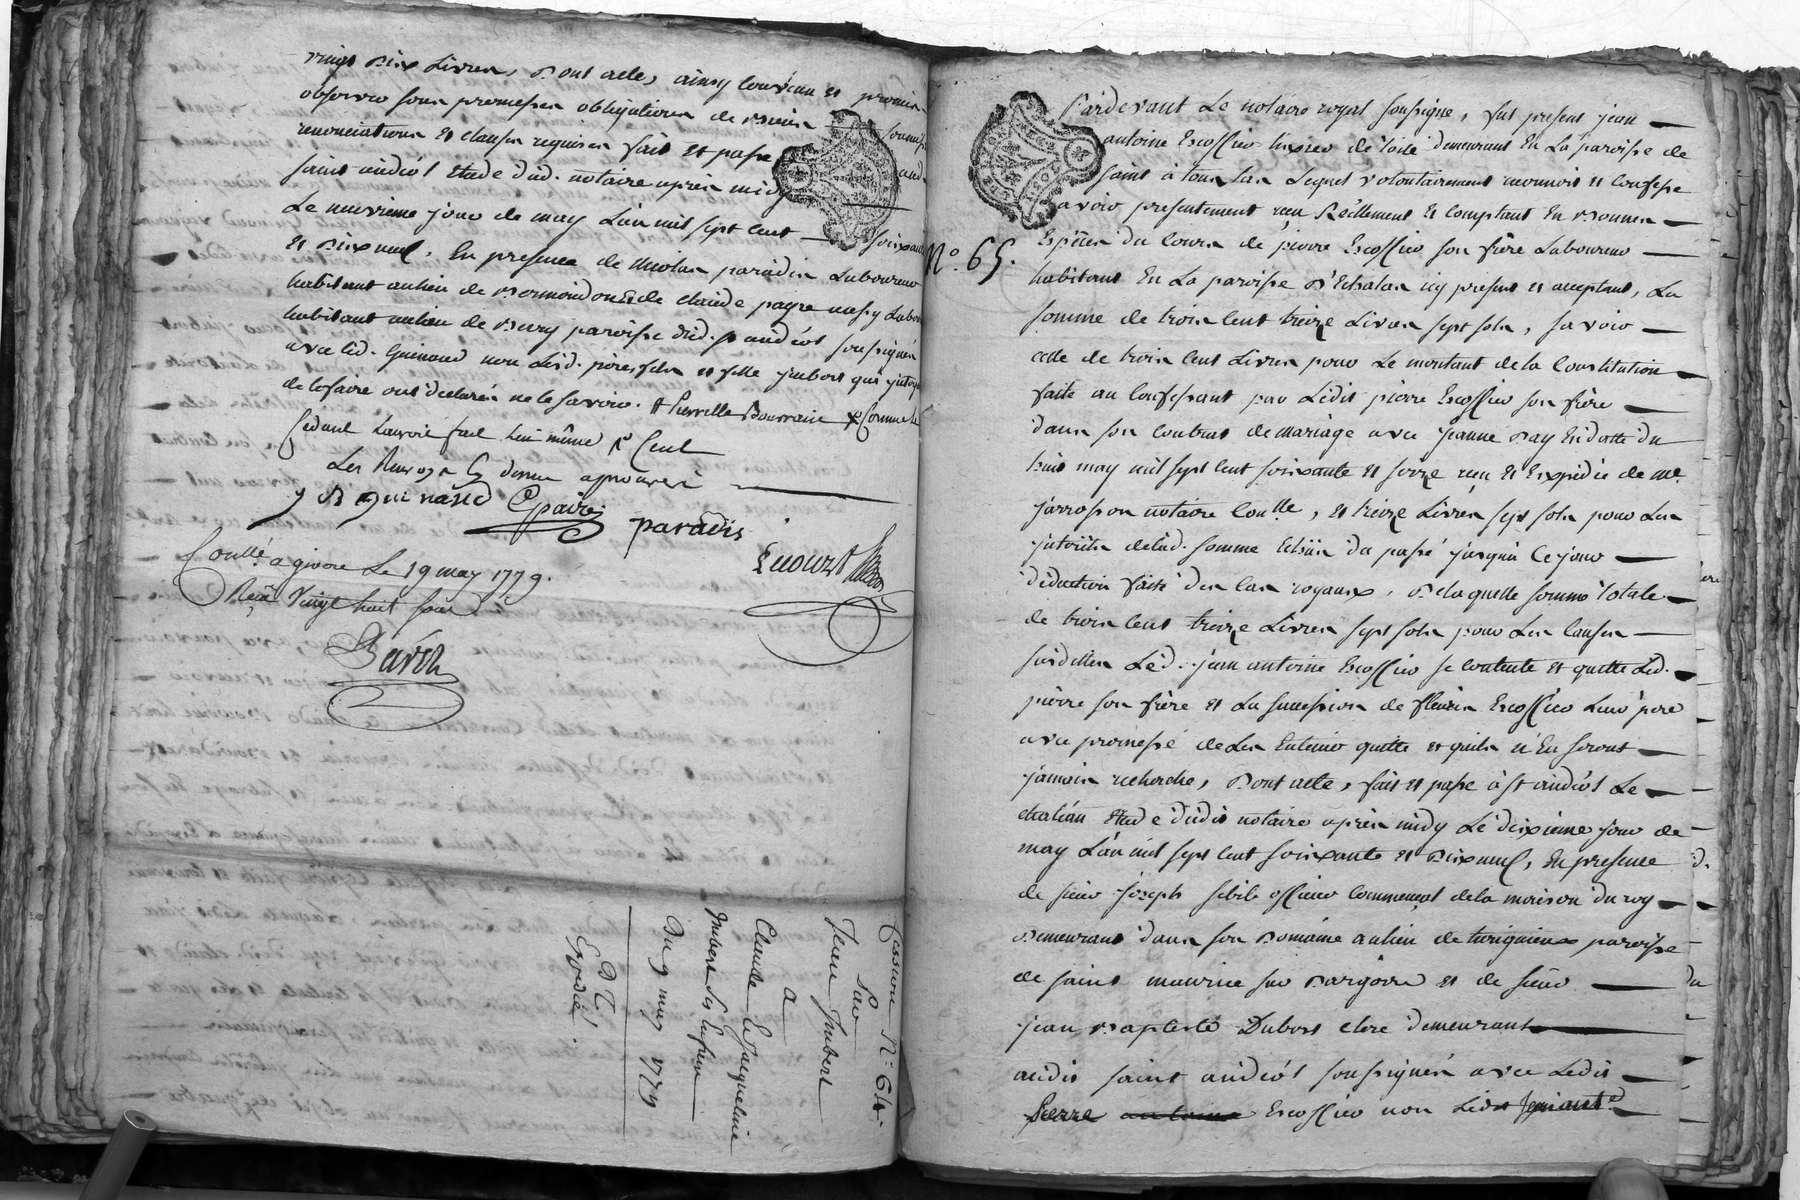 vingt dix Livres, Dont acte, ainsy convenu et promis
observer sous promesses obligations de biens soumis
renonciations et clauses requises fait et passé aud.
saint andéol Etude dud. notaire après midy
Le neuvieme jour de may L'an mil sept cent soixante
et Dix neuf, En presence de Nicolas paradis Laboureur
habitant au lieu de et de claude
habitant au lieu de Bury paroisse dud. st andéol soussignés
avec led. Guinand non Lesd. pere, fils et fille jmbert qui
de le faire ont déclarés ne le savoir. Comme le
Cedant L'auroit fait lui même Cent
Les approuvés
Guinand paradis
Controllé a givors Le 19 may 1779.
Reçu Vingt huit sous
Cession N.° 64.
Par
Jean Jmbert
a
Claude Et Jacqueline
Imbert Ses Enfans
Du 9 may 1779
Expedié
Pardevant Le notaire royal soussigné, fut present jean
antoine Escoffier de toile demeurant En La paroisse de
saint Lequel volontairement reconnoit et confesse
avoir presentement reçu Réellement et comptant En Bonnes
Especes du cours de pierre Escoffier son frère Laboureur
N.° 65.
habitant En La paroisse D'Echalas icy present et acceptant, La
somme de trois cent treize Livres sept sols, savoir
celle de trois cent Livres pour Le montant de la Constitution
faite au confessant par Ledit pierre Escoffier son frère
dans son contrat de mariage avec jeanne En datte du
huit may mil sept cent soixante et seize reçu et Expédié de me.
jarrosson notaire , et treize Livres sept sols pour Les
jnterêts de lad. somme du passé jusqu'à ce jour
déduction faite des cas royaux, De laquelle somme totale
de trois cent treize Livres sept sols pour Les causes
susdittes Led. jean antoine Escoffier se contente et quitte Led.
pierre son frère et La succession de fleurie Escoffier Leur père
avec promesse de Les En tenir quitte et qu'ils n'En seront
jamais recherché, Dont acte, fait et passé à st andéol Le
chateau Etude dudit notaire après midy Le dixieme jour de
may L'an mil sept cent soixante et Dix neuf, En presence
de sieur joseph officier commençal de la maison du roy
Demeurant dans son Domaine au lieu de paroisse
de saint maurice sur Dargoire et de sieur
jean Baptiste Dubost clerc demeurant
audit saint andéol soussignés avec Ledit
Pierre Escoffier non Ledit